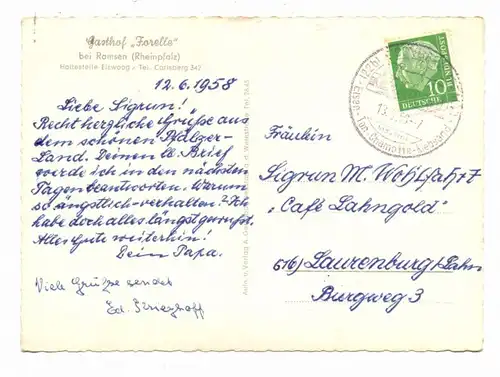 Gasthof „Forelle"
bei Ramsen (Rheinpfalz)
Haltestelle Eiswoog · Tel. Carlsberg 342
12.6.1958
Liebe Sigrun!
Recht herzliche Grüße aus
dem schönen Pfälzer-
Land. Deinen lb. Brief
werde ich in den nächsten
Tagen beantworten. Warum
so ängstlich-verhalten? Ich
habe doch alles längst gewußt.
Alles Gute weiterhin!
Dein Papa.
Viele Grüße sendet
Ed.
DEUTSCHE
BUNDESPOST
10
Fräulein
Sigrun M. Wohlfahrt
"Café Lahngold"
(16) Laurenburg/Lahn
Burgweg 3